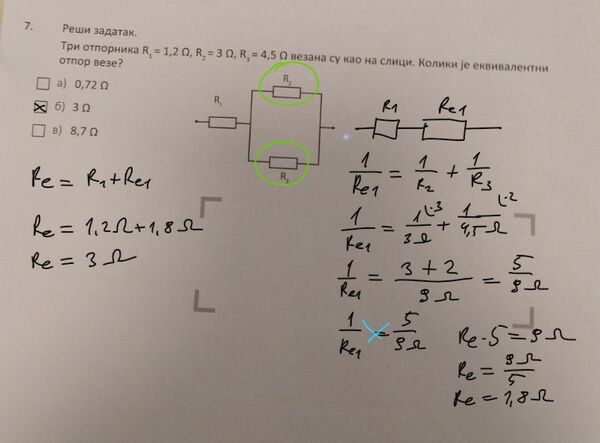 7. Реши задатак.
Три отпорника R₁ = 1,2 Ω, R₂ = 3 Ω, R₃ = 4,5 Ω везана су као на слици. Колики је еквивалентни
отпор везе?
а) 0,72 Ω
б) 3 Ω
в) 8,7 Ω
R₁
R₂
R₃
R1 Re1
Re = R1 + Re1
Re = 1,2Ω + 1,8Ω
Re = 3 Ω
1/Re1 = 1/R2 + 1/R3
1/Re1 = 1/3Ω (·3 + 1/4,5Ω (·2
1/Re1 = 3 + 2/9Ω = 5/9Ω
1/Re1 = 5/9Ω
Re · 5 = 9Ω
Re = 9Ω/5
Re = 1,8Ω